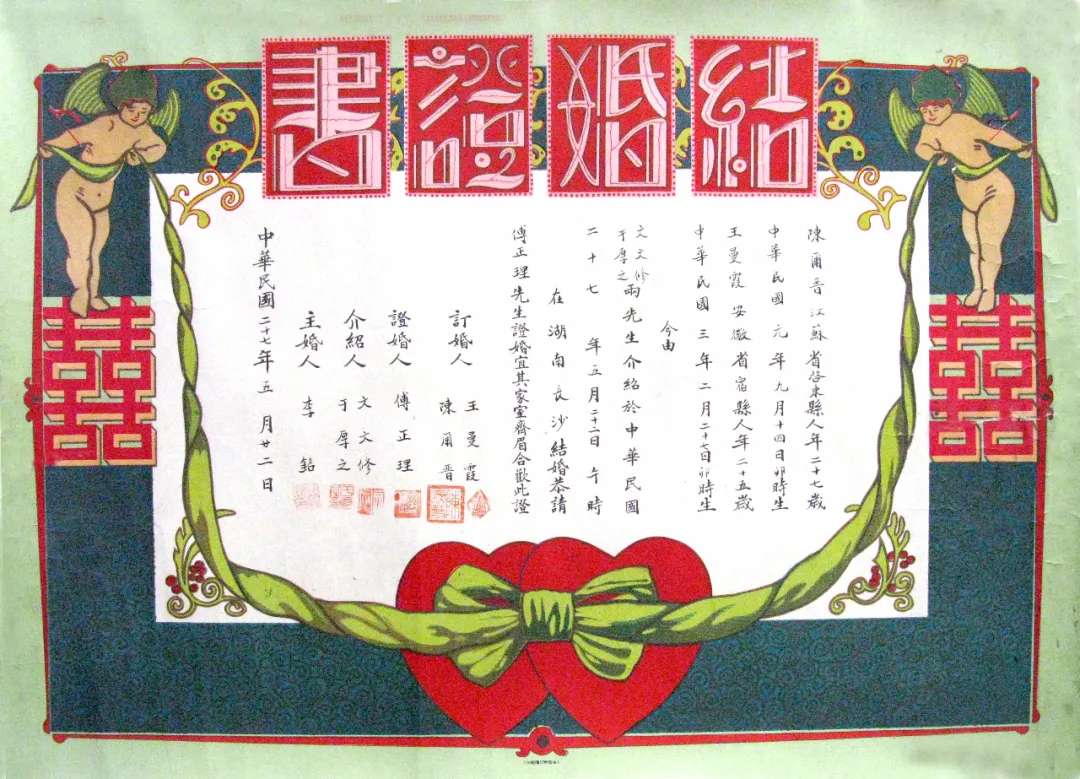 結婚證書
陳爾晋江蘇省啓東縣人年二十七歲
中華民國元年九月十四日卯時生
王曼霞安徽省宿縣人年二十五歲
中華民國三年二月二十七日卯時生
今由
文文修
于厚之
兩先生介紹於中華民國
二十七年五月二十二日午時
在湖南長沙結婚恭請
傅正理先生證婚宜其家室齊眉合歡此證
訂婚人
王曼霞
陳爾晋
證婚人傅正理
介紹人
文文修
于厚之
主婚人李銘
中華民國二十七年五月廿二日
囍
囍